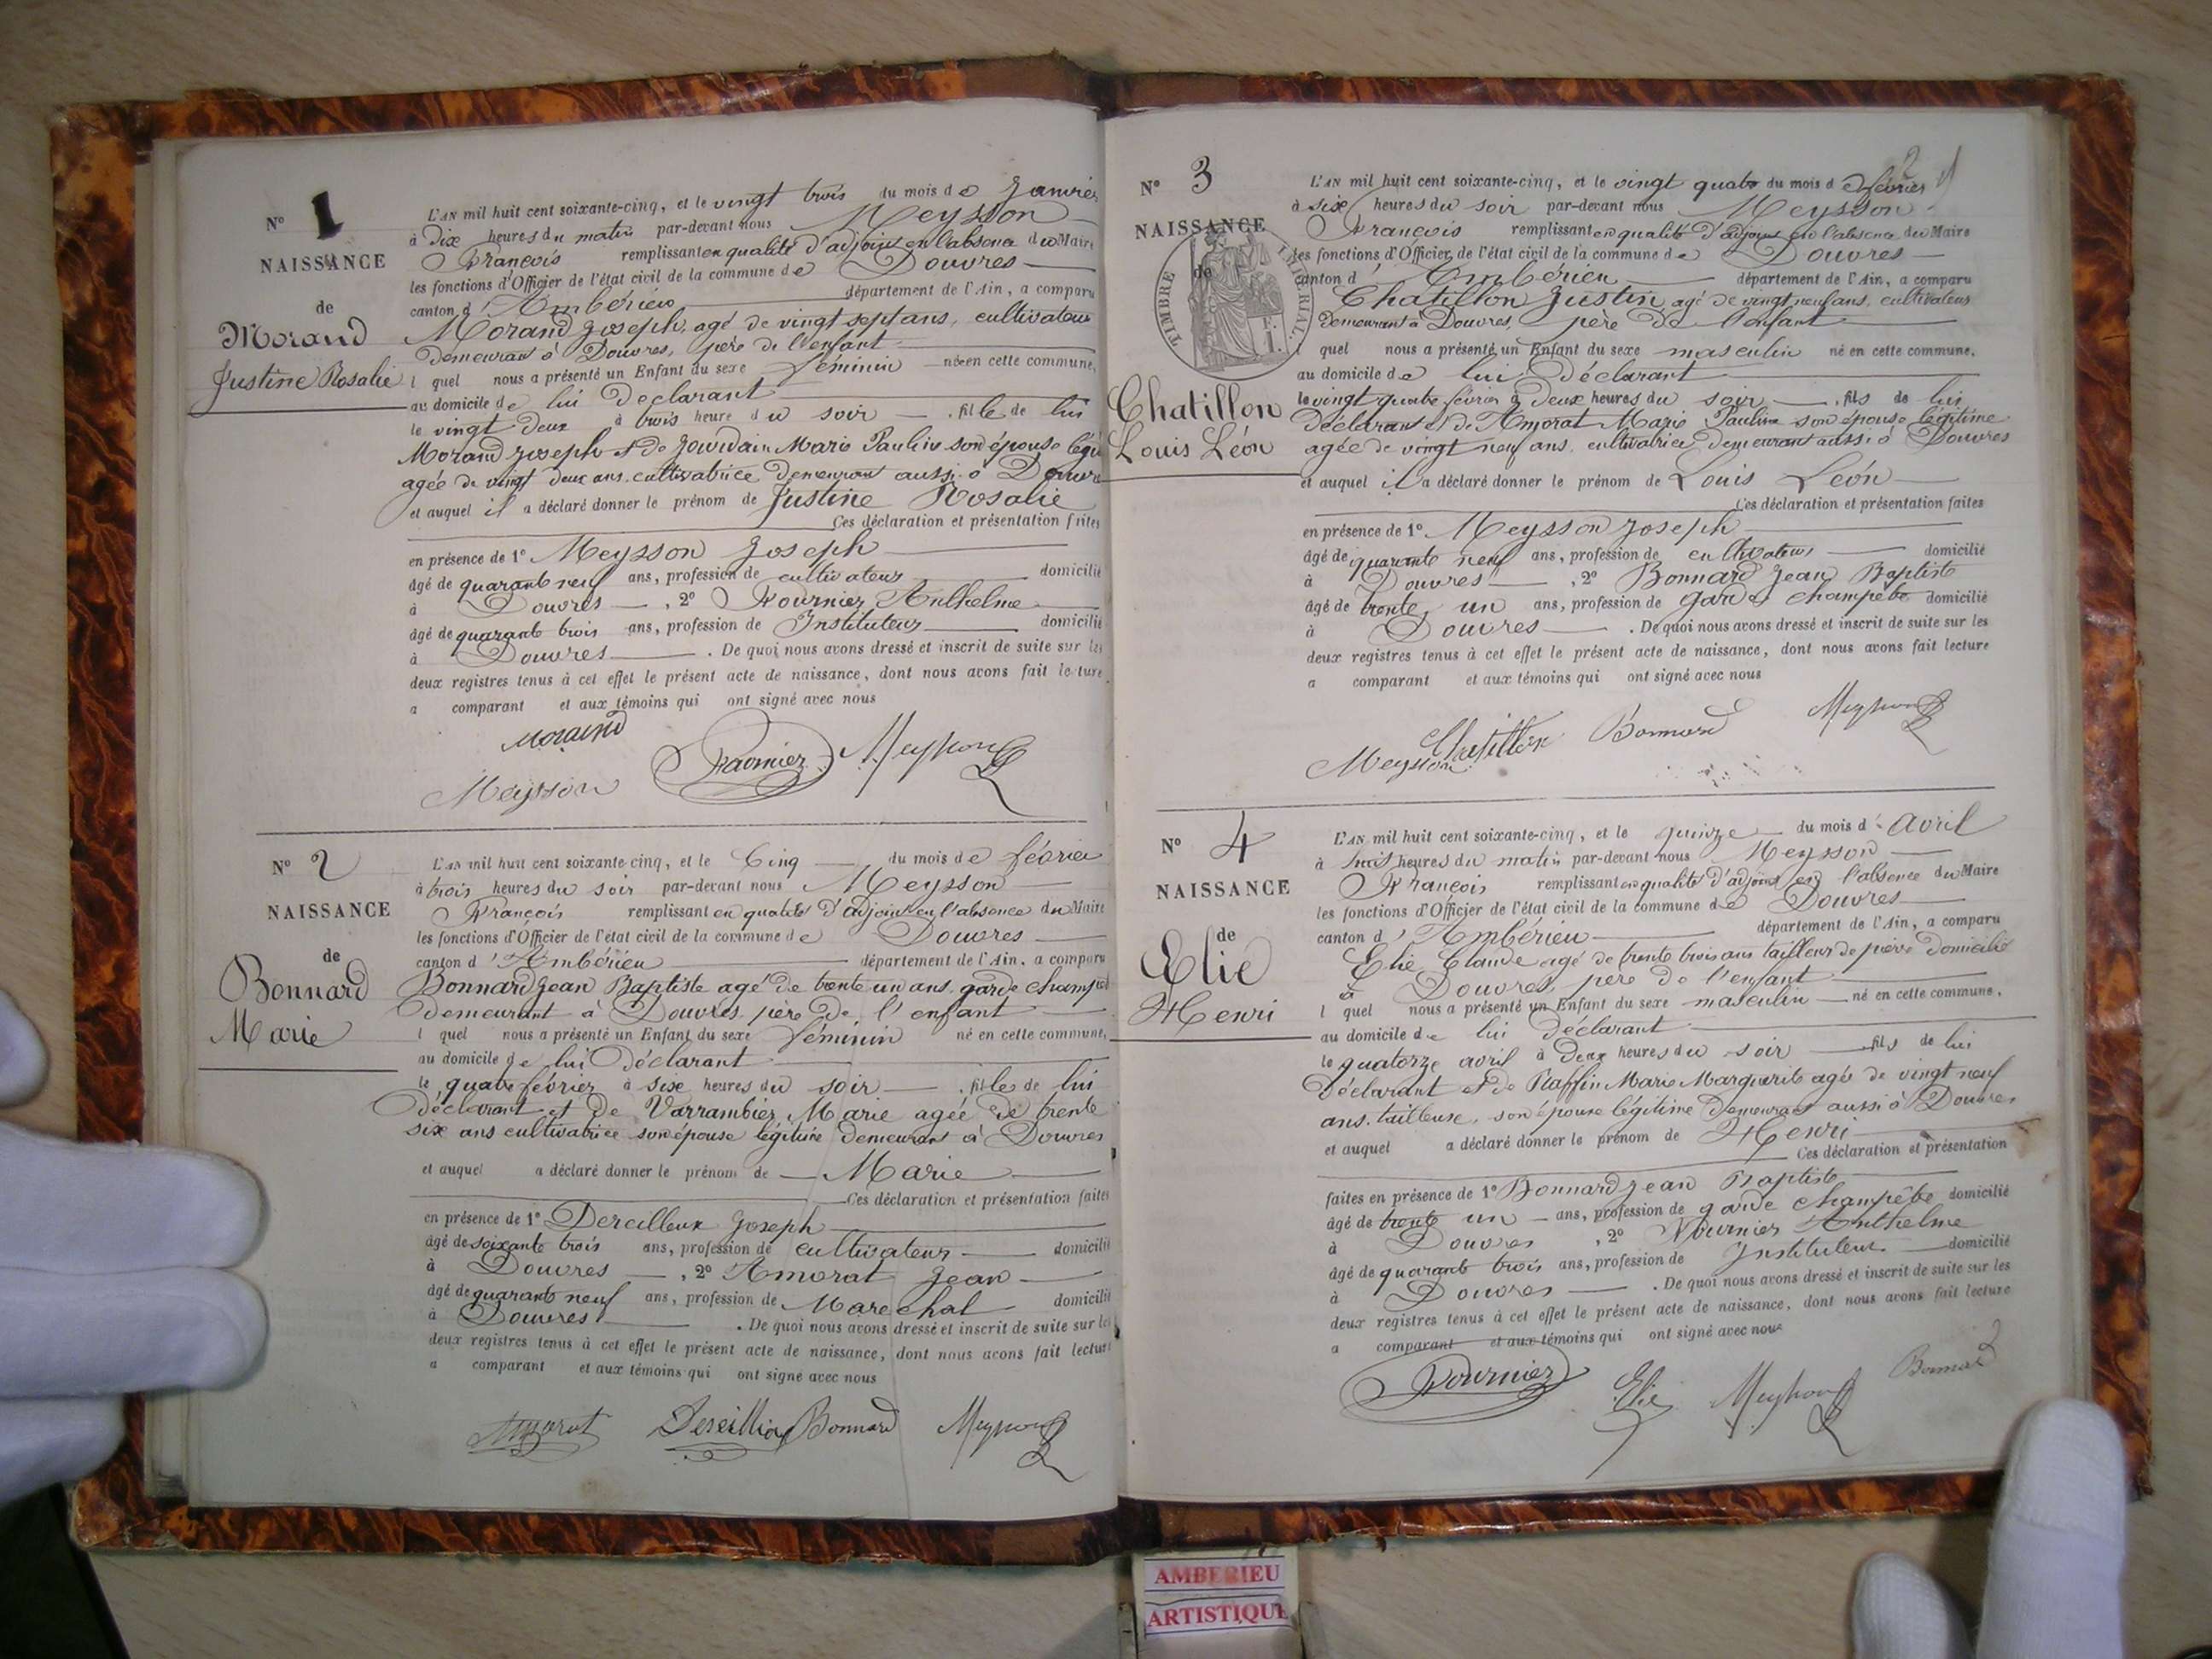 N° 1
NAISSANCE
de
Morand
Justine Rosalie
L'AN mil huit cent soixante-cinq, et le vingt trois du mois de Janvier
à Dix heures du matin par-devant nous Meysson
François remplissant en qualité d'adjoint en l'absence du Maire
les fonctions d'Officier de l'état civil de la commune de Douvres
canton d'Ambérieu département de l'Ain, a comparu
Morand Joseph, agé de vingt sept ans, cultivateur
demeurant à Douvres, père de l'enfant
l quel nous a présenté un Enfant du sexe féminin née en cette commune,
au domicile de lui Déclarant
le vingt deux à trois heure du soir, fille de lui
Morand Joseph et de Jourdain Marie Pauline son épouse légi
agée de vingt deux ans, cultivatrice demeurant aussi à Douvre
et auquel il a déclaré donner le prénom de Justine Rosalie
Ces déclaration et présentation faites
en présence de 1° Meysson Joseph
âgé de quarante neuf ans, profession de cultivateur domicilié
à Douvres, 2° Fournier Anthelme
âgé de quarante trois ans, profession de Instituteur domicilié
à Douvres. De quoi nous avons dressé et inscrit de suite sur les
deux registres tenus à cet effet le présent acte de naissance, dont nous avons fait lecture
a comparant et aux témoins qui ont signé avec nous
Morand
Meysson Fournier Meysson
N° 2
NAISSANCE
de
Bonnard
Marie
L'AN mil huit cent soixante-cinq, et le Cinq du mois de février
à trois heures du soir par-devant nous Meysson
François remplissant en qualité d'adjoint en l'absence du Maire
les fonctions d'Officier de l'état civil de la commune de Douvres
canton d'Ambérieu département de l'Ain, a comparu
Bonnard Jean Baptiste agé de trente un ans, garde champêt
demeurant à Douvres, père de l'enfant
l quel nous a présenté un Enfant du sexe féminin né en cette commune,
au domicile de lui Déclarant
le quatre février à six heures du soir, fille de lui
déclarant et de Varrambier Marie agée de trente
six ans cultivatrice son épouse légitime demeurant à Douvres
et auquel a déclaré donner le prénom de Marie
Ces déclaration et présentation faites
en présence de 1° Joseph
âgé de soixante trois ans, profession de cultivateur domicilié
à Douvres, 2° Amorat Jean
âgé de quarante neuf ans, profession de Marechal domicilié
à Douvres. De quoi nous avons dressé et inscrit de suite sur les
deux registres tenus à cet effet le présent acte de naissance, dont nous avons fait lecture
a comparant et aux témoins qui ont signé avec nous
Amorat Bonnard Meysson
2
N° 3
NAISSANCE
de
TIMBRE IMPÉRIAL.
Chatillon
Louis Léon
L'AN mil huit cent soixante-cinq, et le vingt quatre du mois d février
à six heures du soir par-devant nous Meysson
François remplissant en qualité d'adjoint en l'absence du Maire
les fonctions d'Officier de l'état civil de la commune de Douvres
canton d'Ambérieu département de l'Ain, a comparu
Chatillon Justin agé de vingt neuf ans, cultivateur
demeurant à Douvres, père de l'enfant
l quel nous a présenté un Enfant du sexe masculin né en cette commune.
au domicile de lui Déclarant
le vingt quatre février à Deux heures du soir, fils de lui
Déclarant et de Amorat Marie Pauline son épouse légitime
agée de vingt neuf ans, cultivatrice demeurant aussi à Douvres
et auquel il a déclaré donner le prénom de Louis Léon
Ces déclaration et présentation faites
en présence de 1° Meysson Joseph
âgé de quarante neuf ans, profession de cultivateur domicilié
à Douvres, 2° Bonnard Jean Baptiste
âgé de trente un ans, profession de garde champêtre domicilié
à Douvres. De quoi nous avons dressé et inscrit de suite sur les
deux registres tenus à cet effet le présent acte de naissance, dont nous avons fait lecture
a comparant et aux témoins qui ont signé avec nous
Meysson Chatillon Bonnard Meysson
N° 4
NAISSANCE
de
Elie
Henri
L'AN mil huit cent soixante-cinq, et le quinze du mois d'Avril
à huit heures du matin par-devant nous Meysson
François remplissant en qualité d'adjoint en l'absence du Maire
les fonctions d'Officier de l'état civil de la commune de Douvres
canton d'Ambérieu département de l'Ain, a comparu
Elie Claude agé de trente trois ans tailleur de pierre domicilié
à Douvres, père de l'enfant
l quel nous a présenté un Enfant du sexe masculin né en cette commune.
au domicile de lui Déclarant
le quatorze avril à Deux heures du soir fils de lui
Déclarant et de Raffin Marie Marguerite agée de vingt neuf
ans, tailleuse, son épouse légitime demeurant aussi à Douvres
et auquel a déclaré donner le prénom de Henri
Ces déclaration et présentation
faites en présence de 1° Bonnard Jean Baptiste
âgé de trente un ans, profession de garde champêtre domicilié
à Douvres, 2° Fournier Anthelme
âgé de quarante trois ans, profession de Instituteur domicilié
à Douvres. De quoi nous avons dressé et inscrit de suite sur les
deux registres tenus à cet effet le présent acte de naissance, dont nous avons fait lecture
a comparant et aux témoins qui ont signé avec nous
Fournier Elie Meysson Bonnard
AMBERIEU
ARTISTIQUE